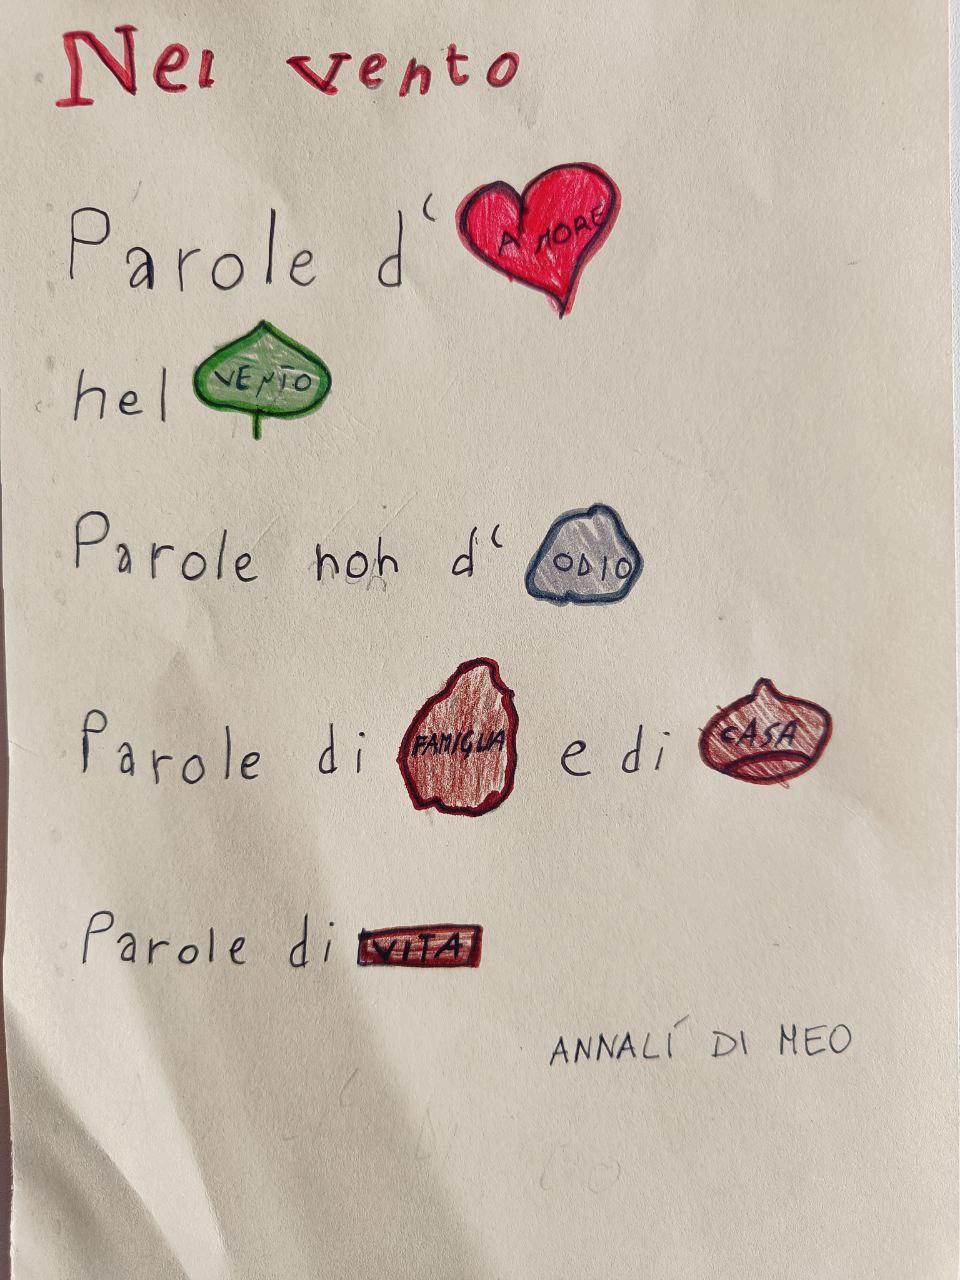 Nel vento
Parole d'AMORE
nel VENTO
Parole non d'ODIO
Parole di FAMIGLIA e di CASA
Parole di VITA
ANNALÍ DI MEO